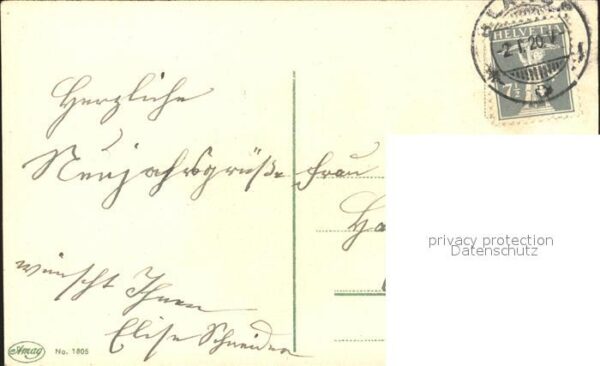 HELVETIA
-2.I.20.V
7½
Herzliche
Neujahrsgrüße
Frau
Ha
wünscht Ihnen
Elise Schneider
Amag
No. 1805
privacy protection
Datenschutz